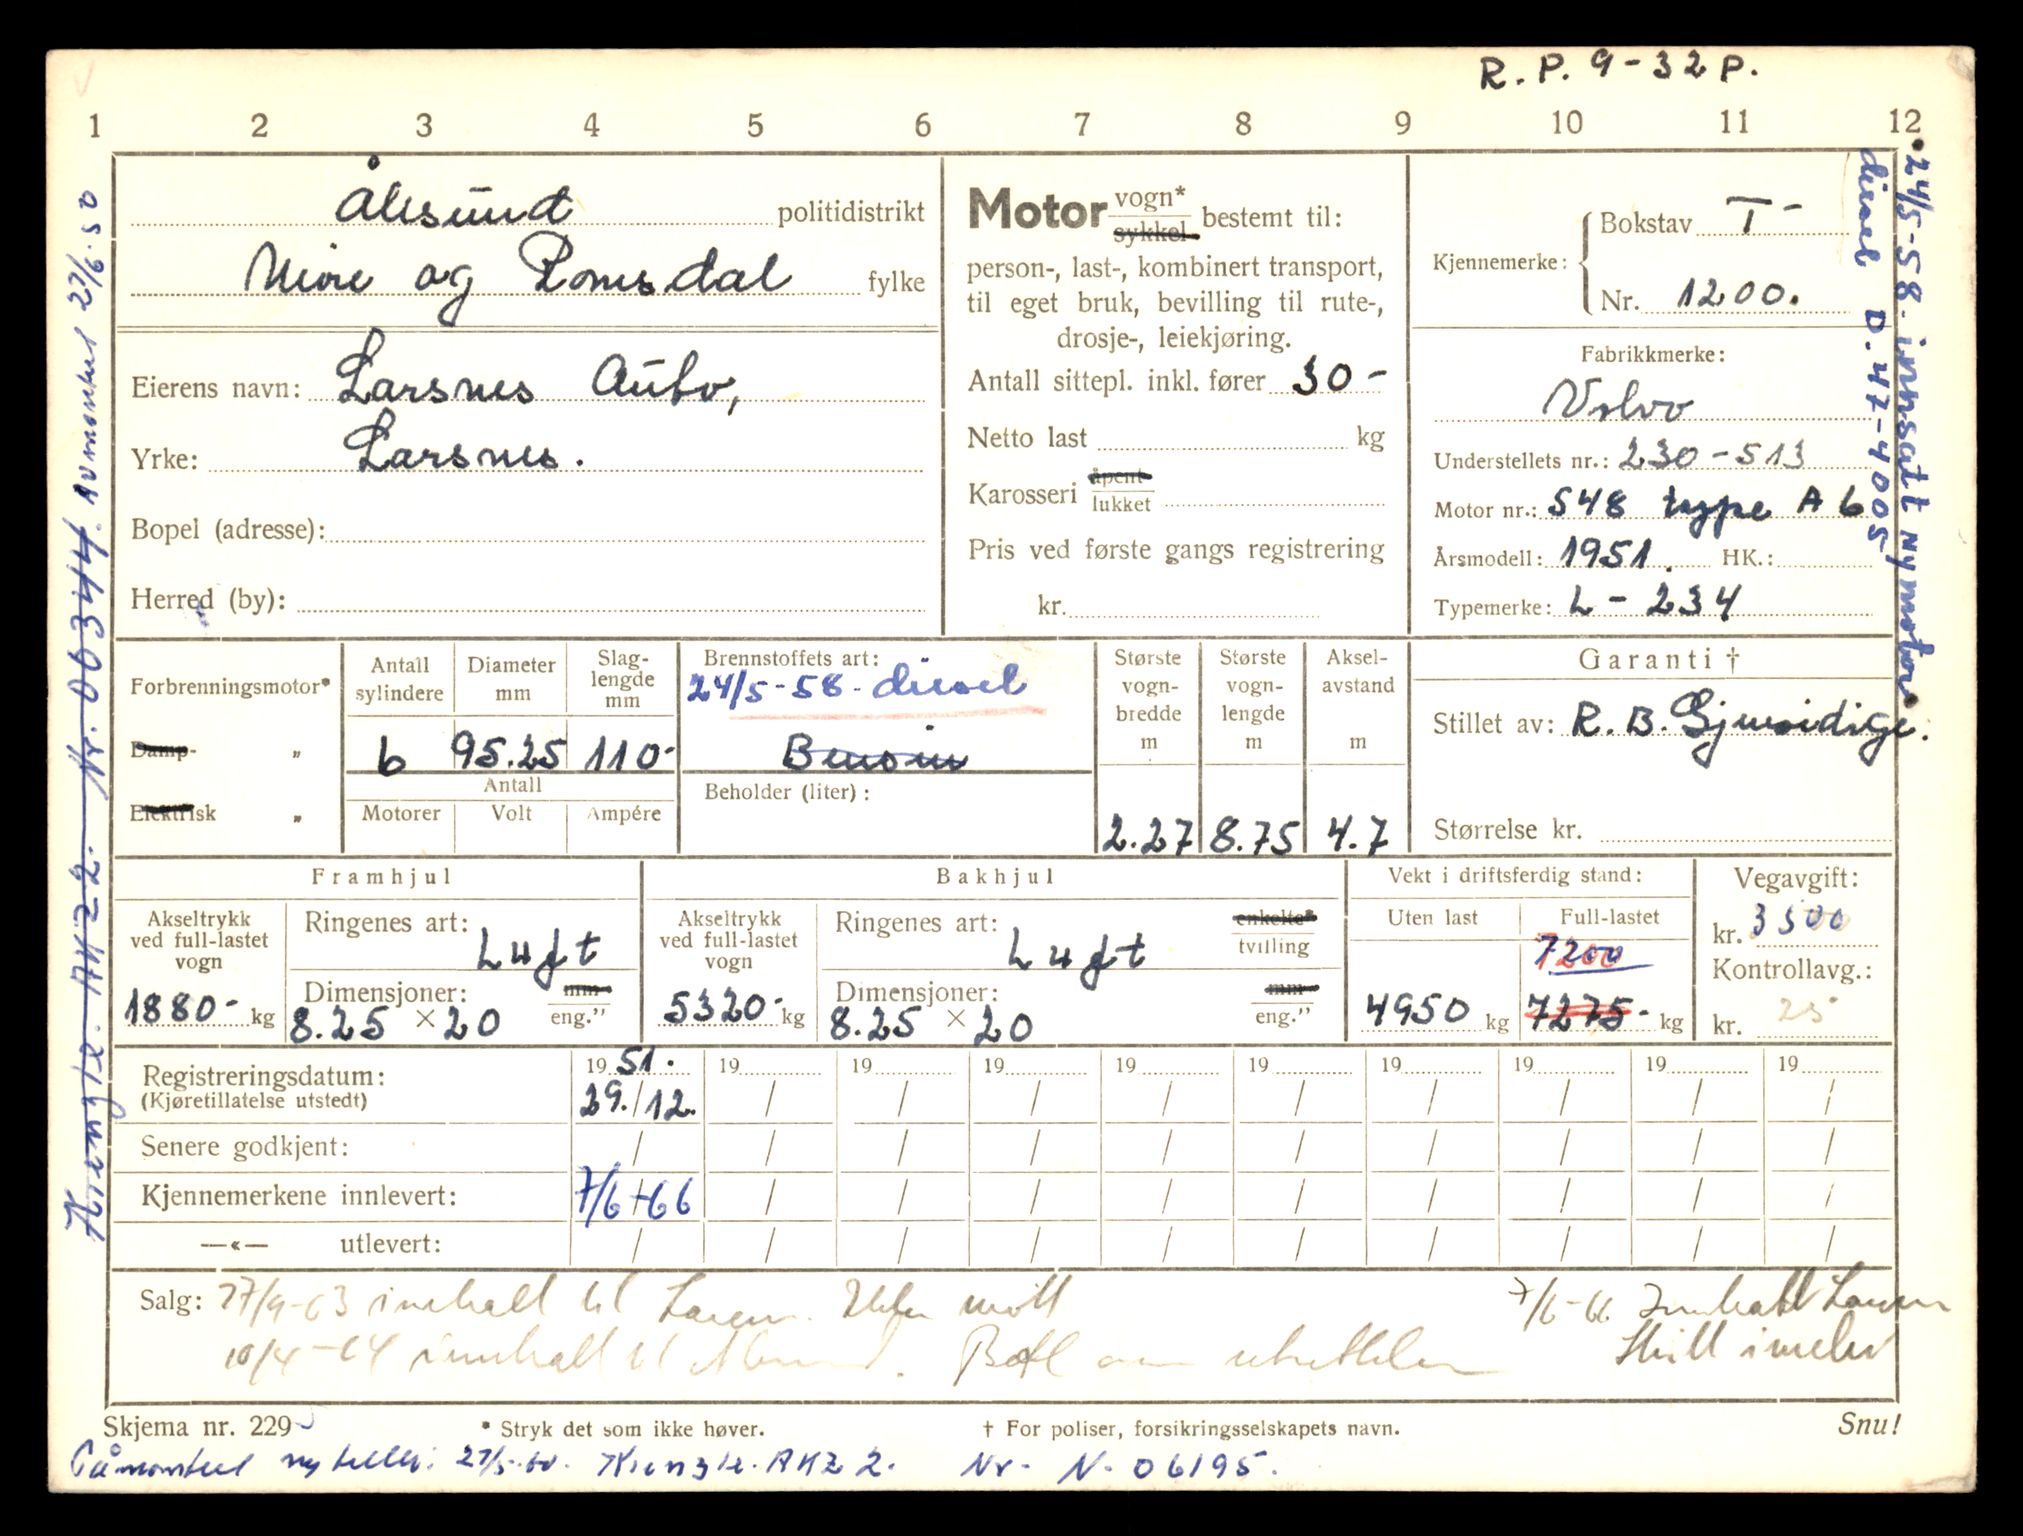 R. P. 9-32 P.
1 2 3 4 5 6 7 8 9 10 11 12
Ålesund politidistrikt
Møre og Romsdal fylke
Eierens navn: Larsnes Auto,
Yrke: Larsnes.
Bopel (adresse):
Herred (by):
Motor vogn* sykkel bestemt til:
person-, last-, kombinert transport,
til eget bruk, bevilling til rute-,
drosje-, leiekjøring.
Antall sittepl. inkl. fører 30-
Netto last kg
Karosseri åpent lukket
Pris ved første gangs registrering
kr.
Kjennemerke: Bokstav T-
Nr. 1200.
Fabrikkmerke:
Volvo
Understellets nr.: 230-513
Motor nr.: 548 type A 6
Årsmodell: 1951. HK.:
Typemerke: L-234
24/5-58. innsatt ny motor
diesel D. 47-4005
Forbrenningsmotor*
Damp- "
Elektrisk "
Antall sylindere
6
Diameter mm
95.25
Slag-lengde mm
110-
Antall
Motorer Volt Ampére
Brennstoffets art:
24/5-58- diesel
Bensin
Beholder (liter):
Største vogn-bredde m
2.27
Største vogn-lengde m
8.75
Aksel-avstand m
4.7
Garanti †
Stillet av: R. B. Gjensidige.
Størrelse kr.
Framhjul
Akseltrykk ved full-lastet vogn
1880- kg
Ringenes art: Luft
Dimensjoner: mm
8.25 × 20 eng."
Bakhjul
Akseltrykk ved full-lastet vogn
5320- kg
Ringenes art: enkelte* tvilling
Luft
Dimensjoner: mm
8.25 × 20 eng."
Vekt i driftsferdig stand:
Uten last
4950 kg
Full-lastet
7200
7275- kg
Vegavgift:
kr. 3500
Kontrollavg.:
kr. 25
Registreringsdatum: 1951. 19 19 19 19 19 19 19 19 19
(Kjøretillatelse utstedt) 29./12. / / / / / / / / /
Senere godkjent: / / / / / / / / / /
Kjennemerkene innlevert: 7/6-66 / / / / / / / / /
—«— utlevert: / / / / / / / / / /
Salg: 27/9-63 innkalt til
10/4-64 innkalt til
7/6-66 Innkalt
Skilt
Skjema nr. 229
* Stryk det som ikke høver.
† For poliser, forsikringsselskapets navn.
Snu!
Påmontert ny teller: 27/5-60. Kienzle. AKZ 2. Nr. N. 06195.
Kienzle. AKZ 2. Nr. 00344. Avmontert 27/6.50